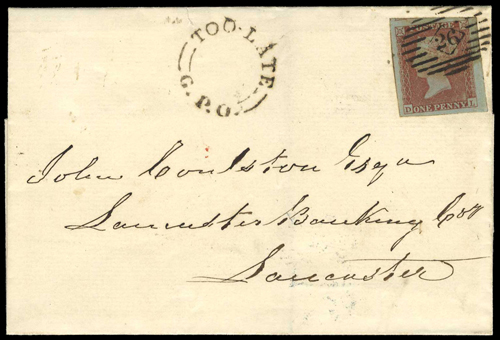 TOO·LATE
G.P.O.
26
POSTAGE
D ONE PENNY L
John Coulston Esqr
Lancaster Banking Coy
Lancaster